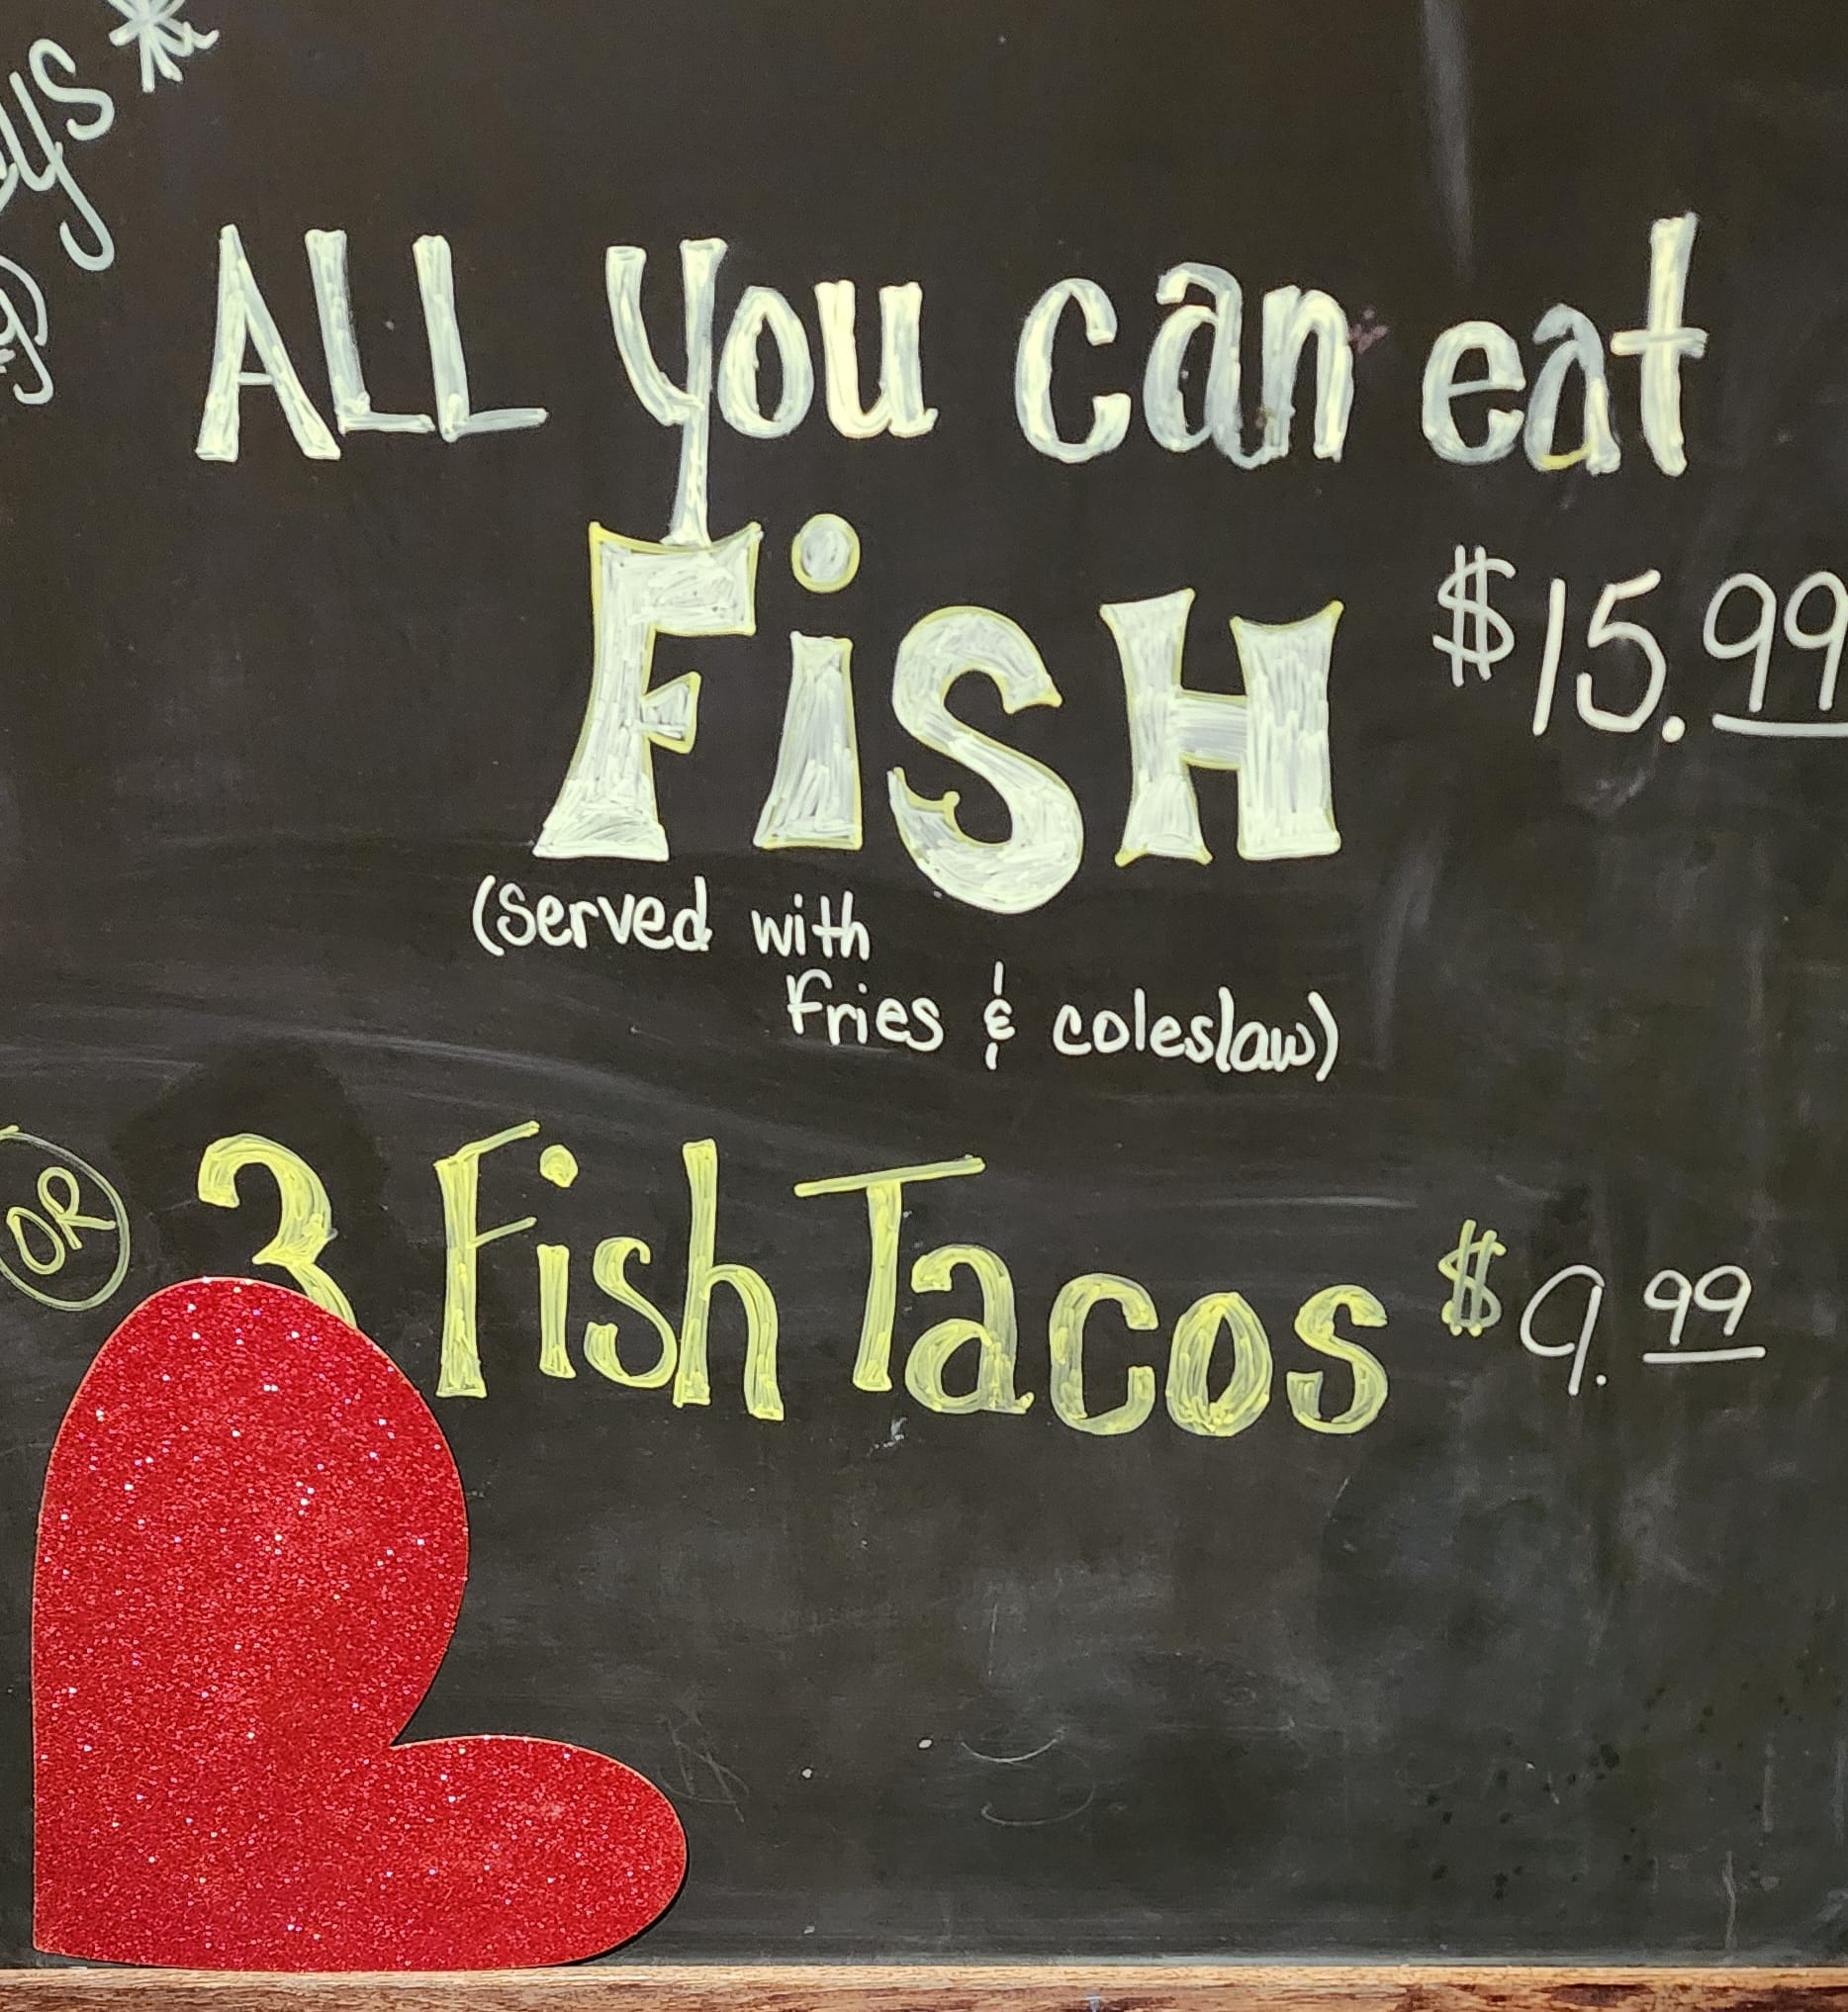 ALL you can eat
FiSH $15.99
(Served with
Fries & coleslaw)
OR 3 Fish Tacos $9.99